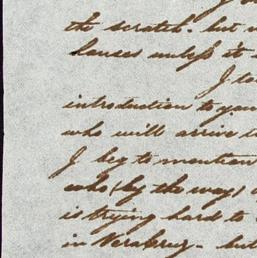 the scratch. but
unless it
I
introduction to you
who will arrive
I beg to mention
who (by the way)
is trying hard to
in Veracruz - but